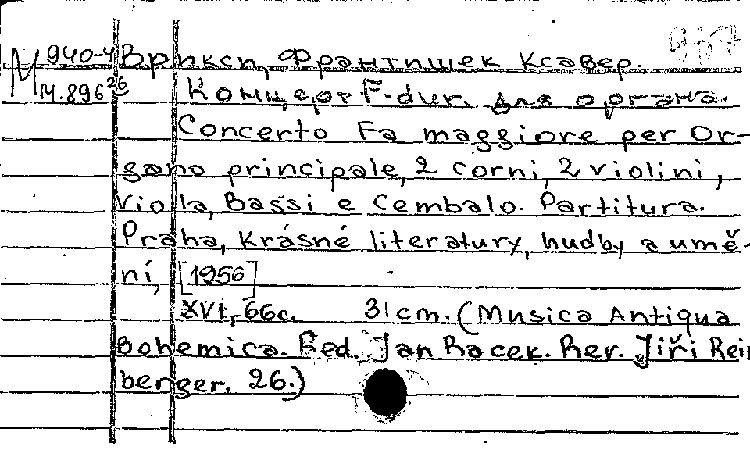 М 940-4 Врикси, Франтишек Ксавер.
М.896 26 Концерт F-dur. для органа.
Concerto Fa maggiore per Or-
gano principale, 2 corni, 2 violini,
Viola, Bassi e Cembalo. Partitura.
Praha, Krásné literatury, hudby a umě-
ní, [1956]
XVI, 66с. 31 cm. (Musica Antiqua
Bohemica. Red. Jan Racek. Rev. Jiří Rein
berger. 26.)